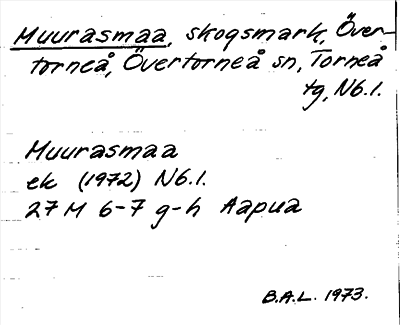 Muurasmaa, skogsmark, Över-
torneå, Övertorneå sn, Torneå
tg, Nb.l.
Muurasmaa
ek (1972) Nb.l.
27 M 6-7 g-h Aapua
B.A.L. 1973.